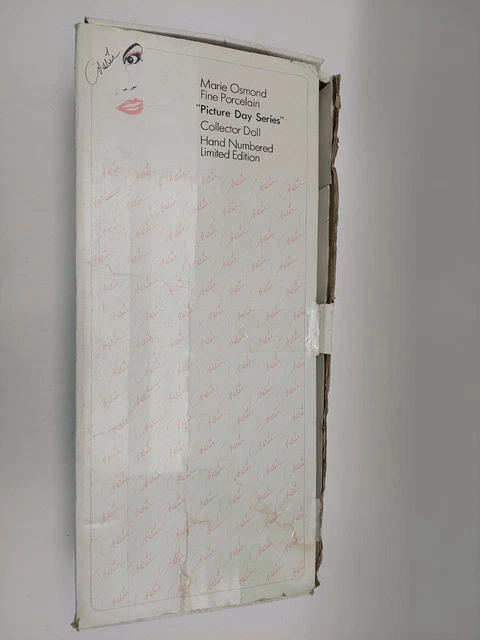 Marie
Marie Osmond
Fine Porcelain
"Picture Day Series"
Collector Doll
Hand Numbered
Limited Edition